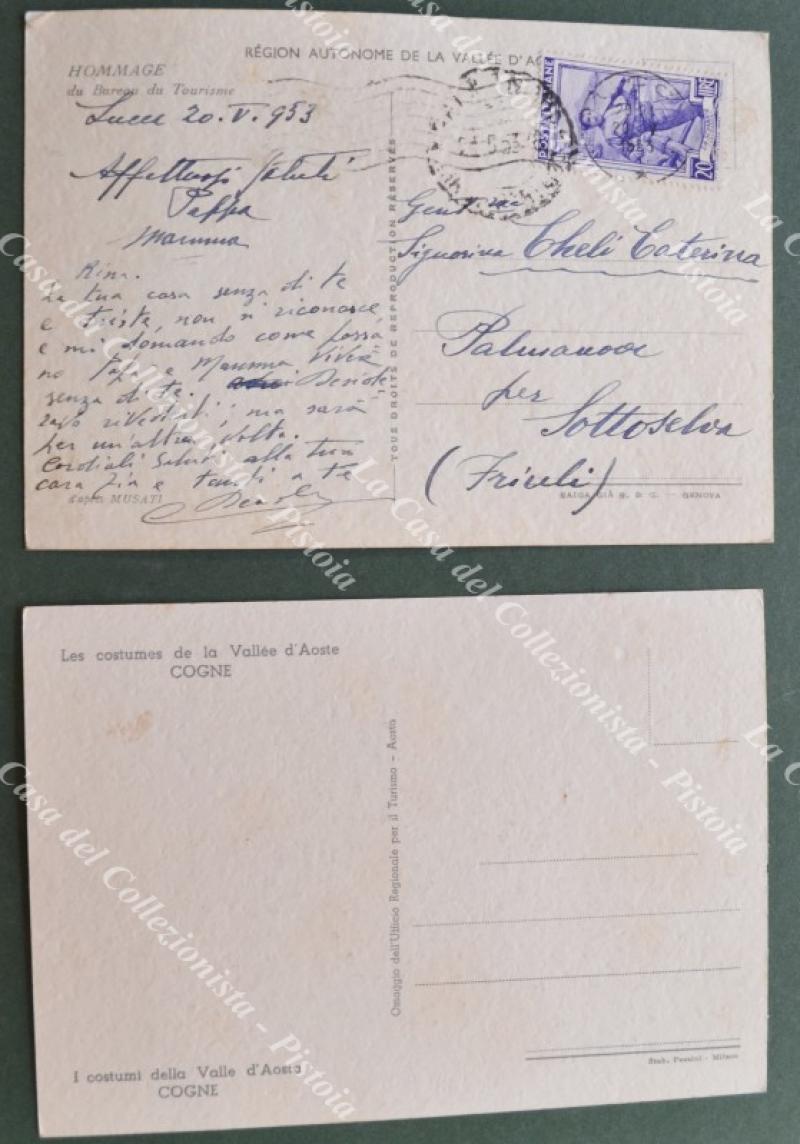 RÉGION AUTONOME DE LA VALLÉE D'AO
HOMMAGE
du Bureau du Tourisme
Lucca 20.V.953
Affettuosi saluti
Pappa
Mamma
Rina.
La tua casa senza di te
e triste, non si riconosce
e mi domando come possa
no Papa e Mamma vivere
senza di te. Desiде
ravo rivederti; ma sarà
per un'altra volta.
Cordiali Saluti alla tua
cara Zia e tanti a te
d'après MUSATI
TOUS DROITS DE REPRODUCTION RÉSERVÉS
POSTE ITALIANE
LIRE
20
Gent.ma
Signorina Cheli Caterina
Palmanova
per
Sottoselva
(Friuli)
SAIGA GIÀ B. & C. — GENOVA
Les costumes de la Vallée d'Aoste
COGNE
Omaggio dell'Ufficio Regionale per il Turismo - Aosta
I costumi della Valle d'Aosta
COGNE
Stab. Pezzini - Milano
La Casa del Collezionista - Pistoia